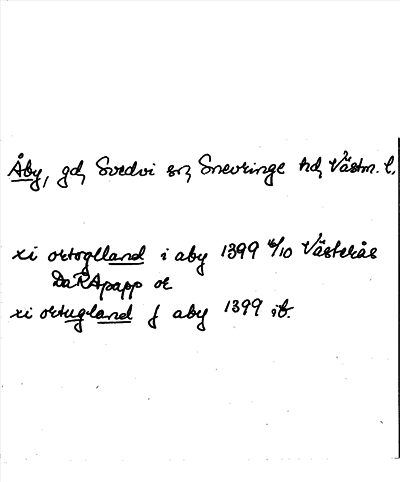 Åby, gd, Svedvi sn, Snevringe hd, Västm. l.
xi ortogland i aby 1399 6/10 Västerås
DaRApapp or
xi ortugland j aby 1399 ib.